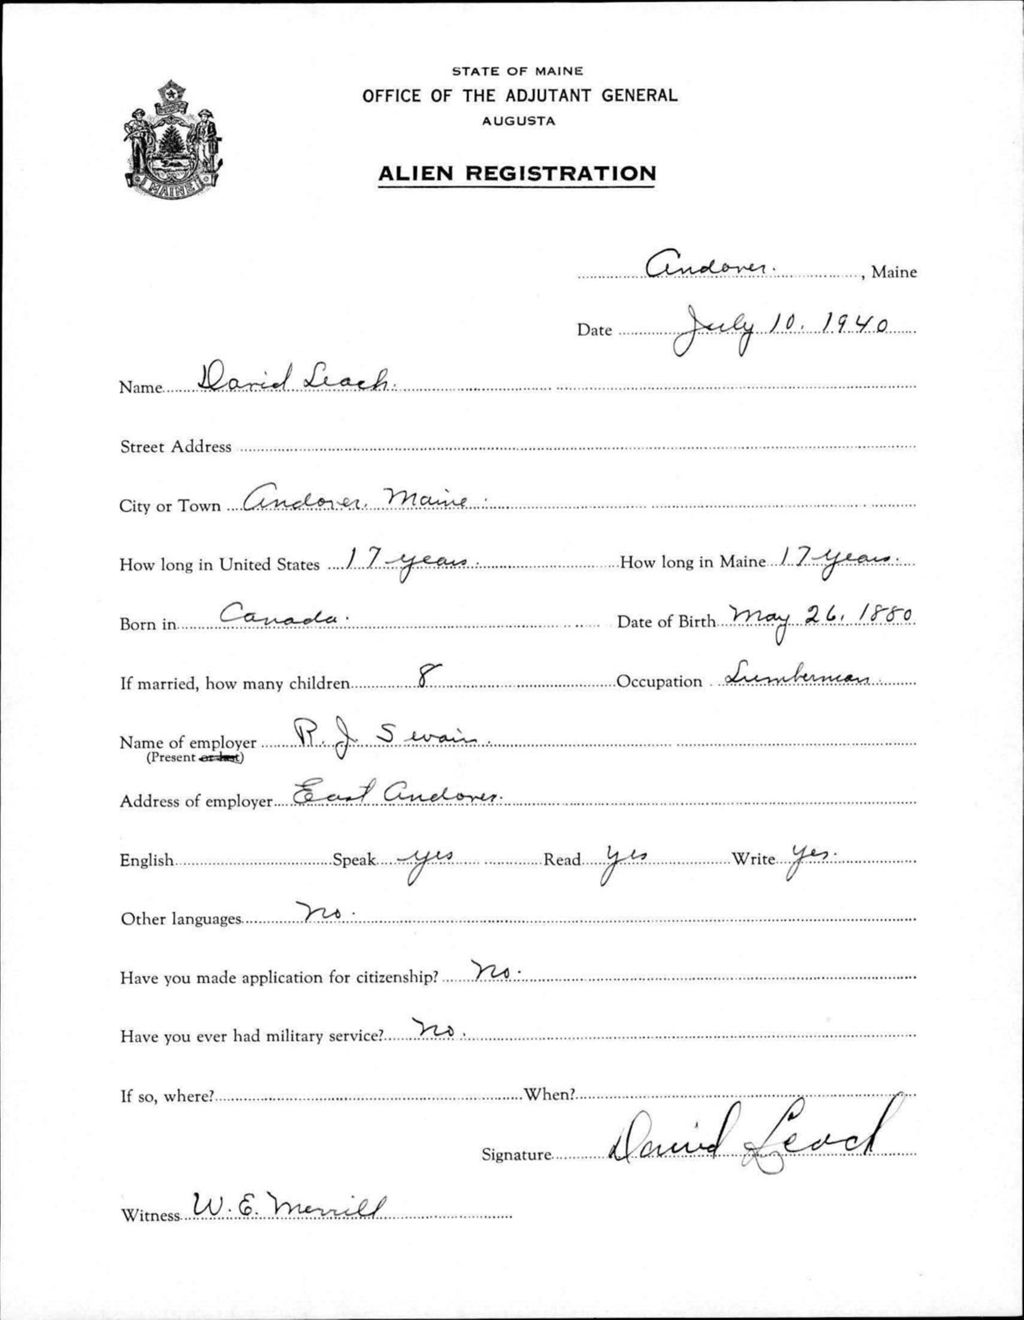 STATE OF MAINE
OFFICE OF THE ADJUTANT GENERAL
AUGUSTA
ALIEN REGISTRATION
MAINE
Andover. , Maine
Date July 10. 1940
Name David Leach.
Street Address
City or Town Andover. Maine.
How long in United States 17 years. How long in Maine 17 years.
Born in Canada. Date of Birth May 26, 1880
If married, how many children 8 Occupation Lumberman.
Name of employer R. J. Swain.
(Present or last)
Address of employer East Andover.
English Speak yes Read yes Write yes.
Other languages no.
Have you made application for citizenship? no.
Have you ever had military service? no.
If so, where? When?
Signature David Leach
Witness W. E. Merrill